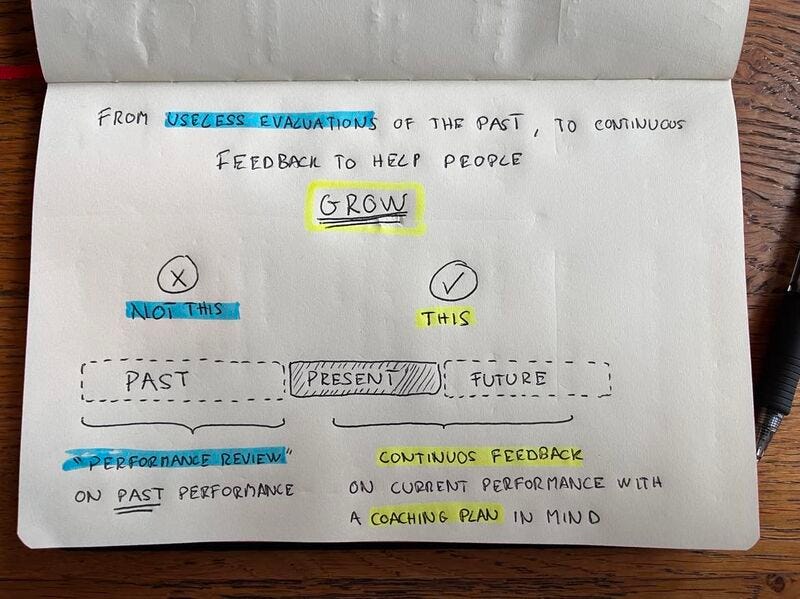 FROM USELESS EVALUATIONS OF THE PAST, TO CONTINUOUS
FEEDBACK TO HELP PEOPLE
GROW
X ✓
NOT THIS THIS
PAST PRESENT FUTURE
"PERFORMANCE REVIEW" CONTINUOS FEEDBACK
ON PAST PERFORMANCE ON CURRENT PERFORMANCE WITH
A COACHING PLAN IN MIND